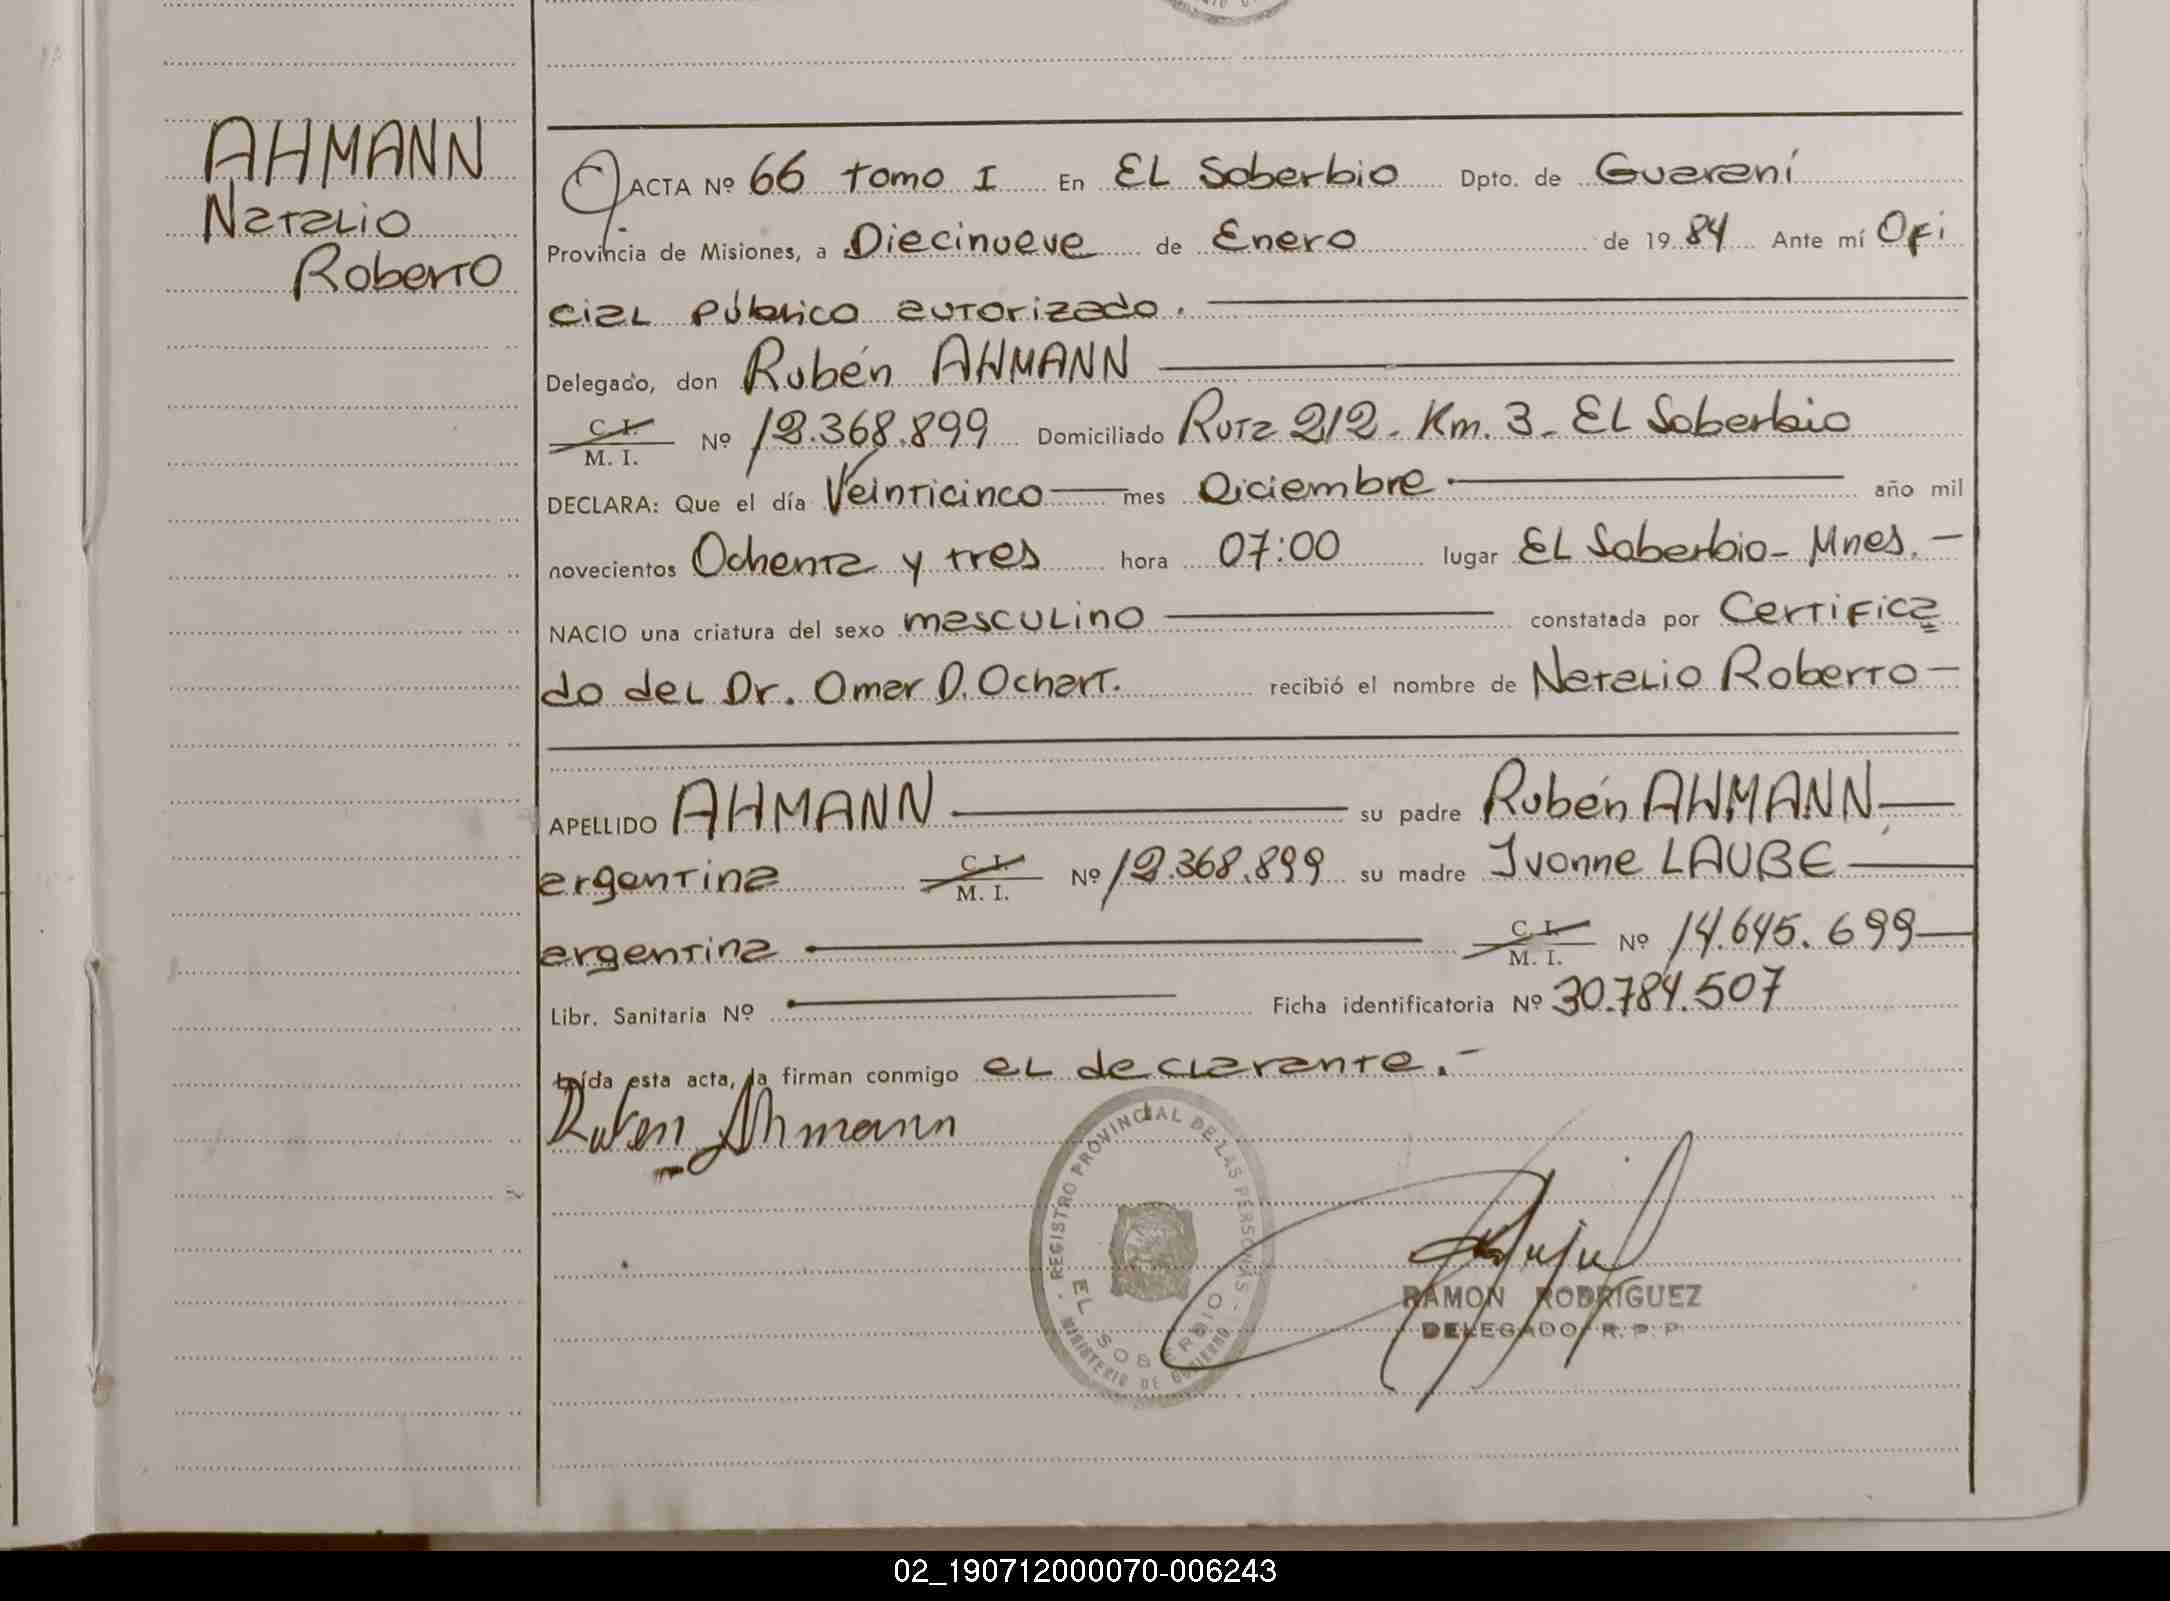 AHMANN
Natalio
Roberto
ACTA Nº 66 tomo I En EL Soberbio Dpto. de Guaraní
Provincia de Misiones, a Diecinueve de Enero de 1984 Ante mí Ofi
cial Público autorizado.
Delegado, don Rubén AHMANN
C. I.
M. I. Nº 12.368.899 Domiciliado Ruta 212 - Km. 3 - EL Soberbio
DECLARA: Que el día Veinticinco mes Diciembre año mil
novecientos Ochenta y tres hora 07:00 lugar EL Soberbio - Mnes. -
NACIO una criatura del sexo masculino constatada por Certifica
do del Dr. Omar D. Ochart. recibió el nombre de Natalio Roberto -
APELLIDO AHMANN su padre Rubén AHMANN
argentina C. I. M. I. Nº 12.368.899 su madre Ivonne LAUBE
argentina C. I. M. I. Nº 14.645.699
Libr. Sanitaria Nº Ficha identificatoria Nº 30.784.507
Leída esta acta, la firman conmigo el declarante. -
Ruben Ahmann
REGISTRO PROVINCIAL DE LAS PERSONAS
EL SOBERBIO
MINISTERIO DE GOBIERNO
RAMON RODRIGUEZ
DELEGADO R. P. P.
02_190712000070-006243